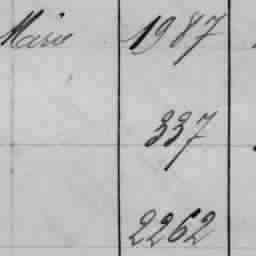 Marie 1987
337
2262